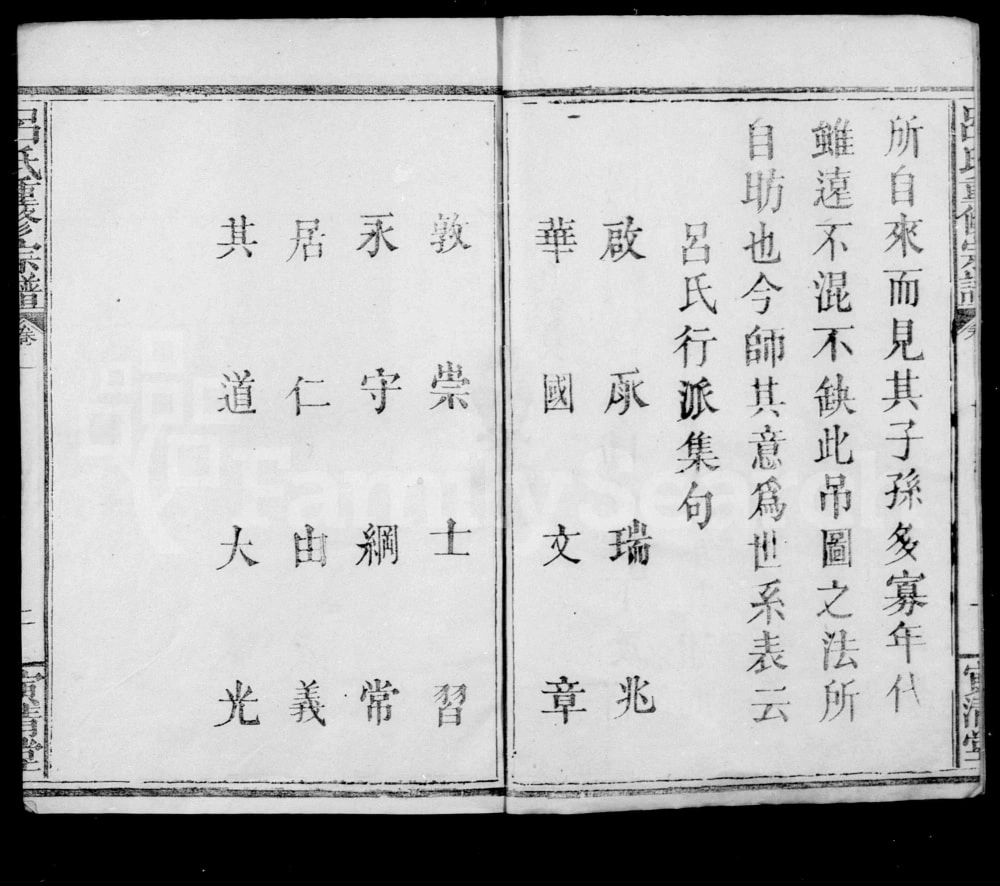 所自來而見其子孫多寡年代
雖遠不混不缺此吊圖之法所
自昉也今師其意爲世系表云
呂氏行派集句
啟承瑞兆
華國文章
敦崇士習
永守綱常
居仁由義
其道大光
呂氏重修宗譜
卷
二
FamilySearch